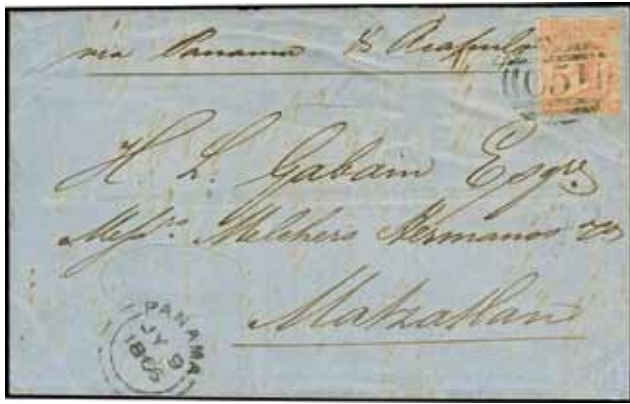 via Panama & Acapulco
C51
H. L. Gabain Esqre
Messrs Melchers Hermanos & Co
Matzatlan
PANAMA
JY 9
1865